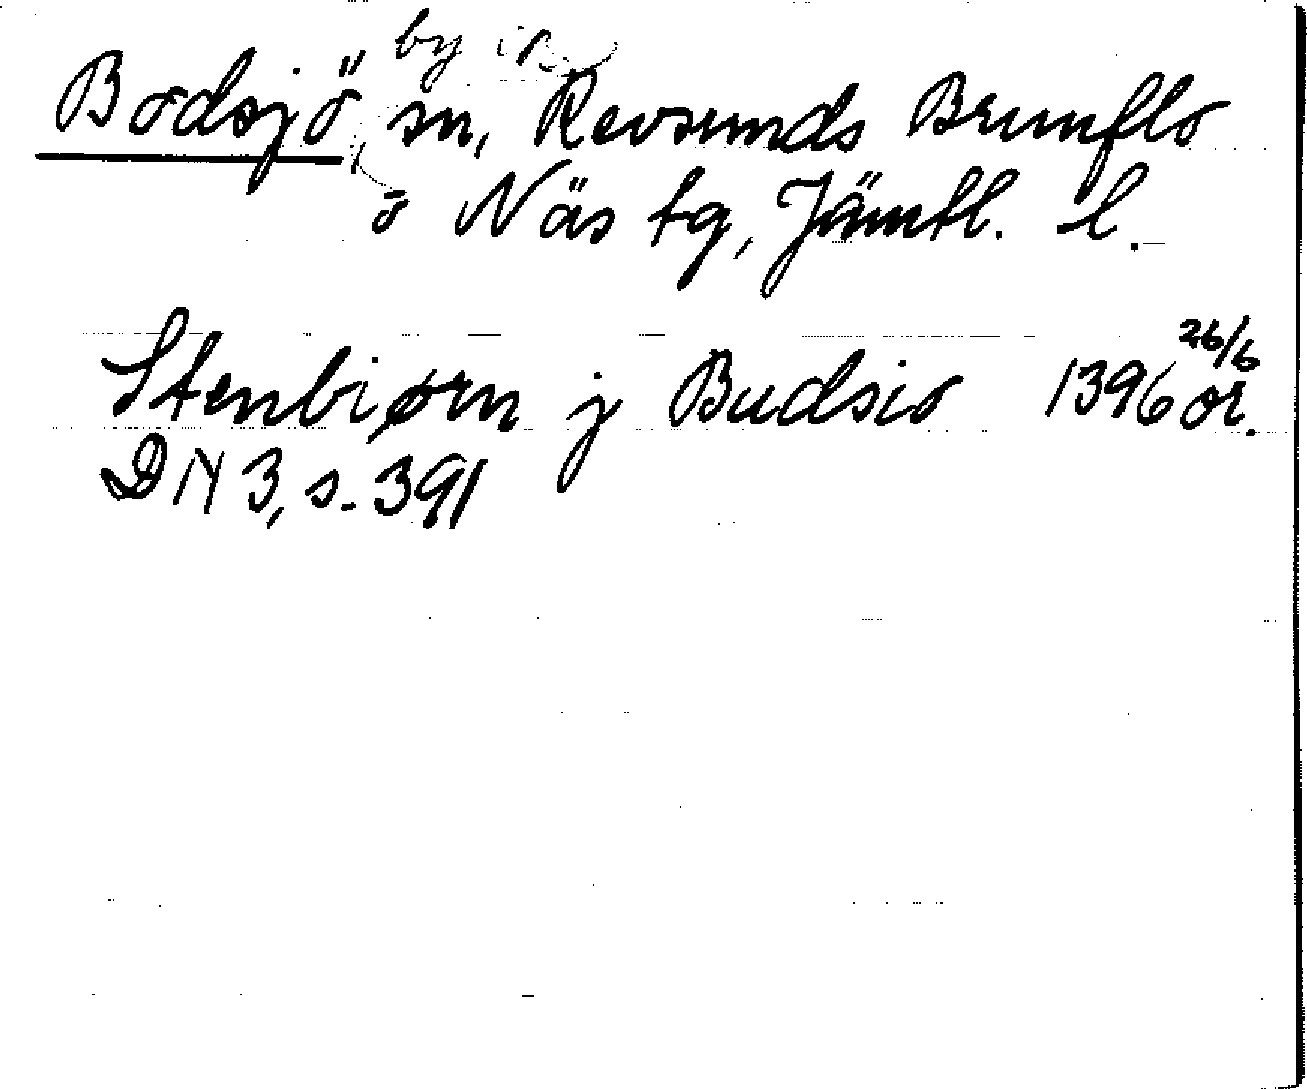 by i B.
Bodsjö sn, Revsunds Brunflo
o Näs tg, Jämtl. l.
Stenbiørn j Budsio 1396 26/6 or.
DN 3, s. 391